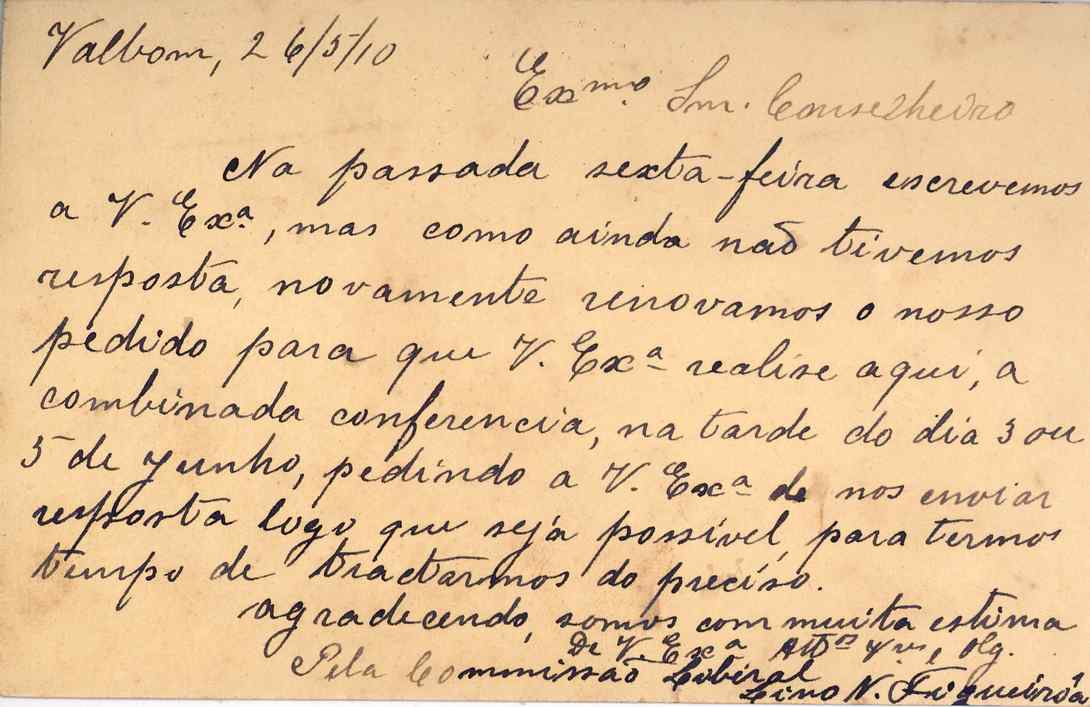 Valbom, 26/5/10
Exmo. Snr. Conselheiro
Na passada sexta-feira escrevemos
a V. Exa., mas como ainda não tivemos
resposta, novamente renovamos o nosso
pedido para que V. Exa realise aqui, a
combinada conferencia, na tarde do dia 3 ou
5 de Junho, pedindo a V. Exa de nos enviar
resposta logo que seja possivel, para termos
tempo de tractarmos do preciso.
Agradecendo, somos com muita estima
De V. Exa Atto
Pela Commissão Liberal
Lino N. Figueirôa